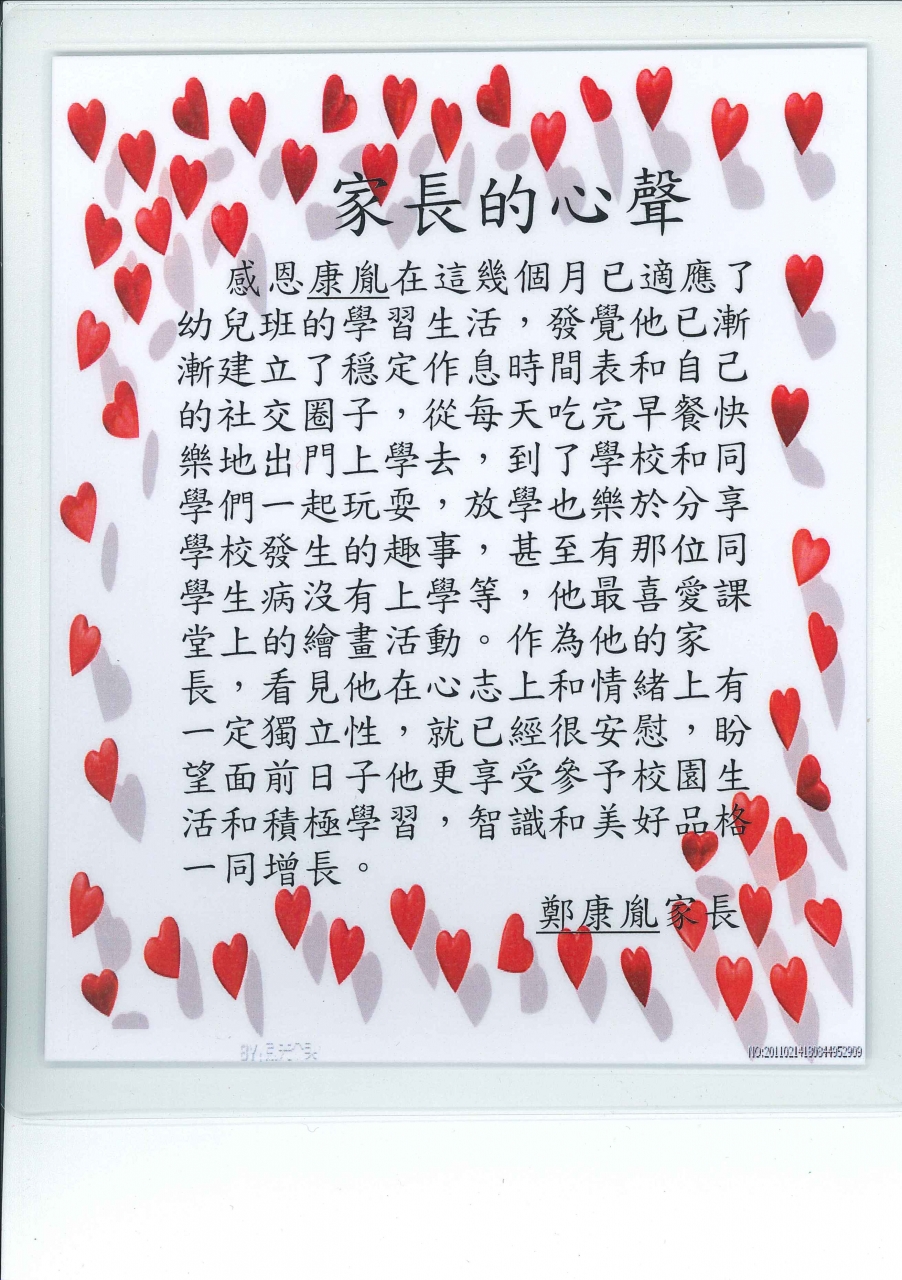 家長的心聲
感恩康胤在這幾個月已適應了
幼兒班的學習生活，發覺他已漸
漸建立了穩定作息時間表和自己
的社交圈子，從每天吃完早餐快
樂地出門上學去，到了學校和同
學們一起玩耍，放學也樂於分享
學校發生的趣事，甚至有那位同
學生病沒有上學等，他最喜愛課
堂上的繪畫活動。作為他的家
長，看見他在心志上和情緒上有
一定獨立性，就已經很安慰，盼
望面前日子他更享受參予校園生
活和積極學習，智識和美好品格
一同增長。
鄭康胤家長
NO:20110214180844952909